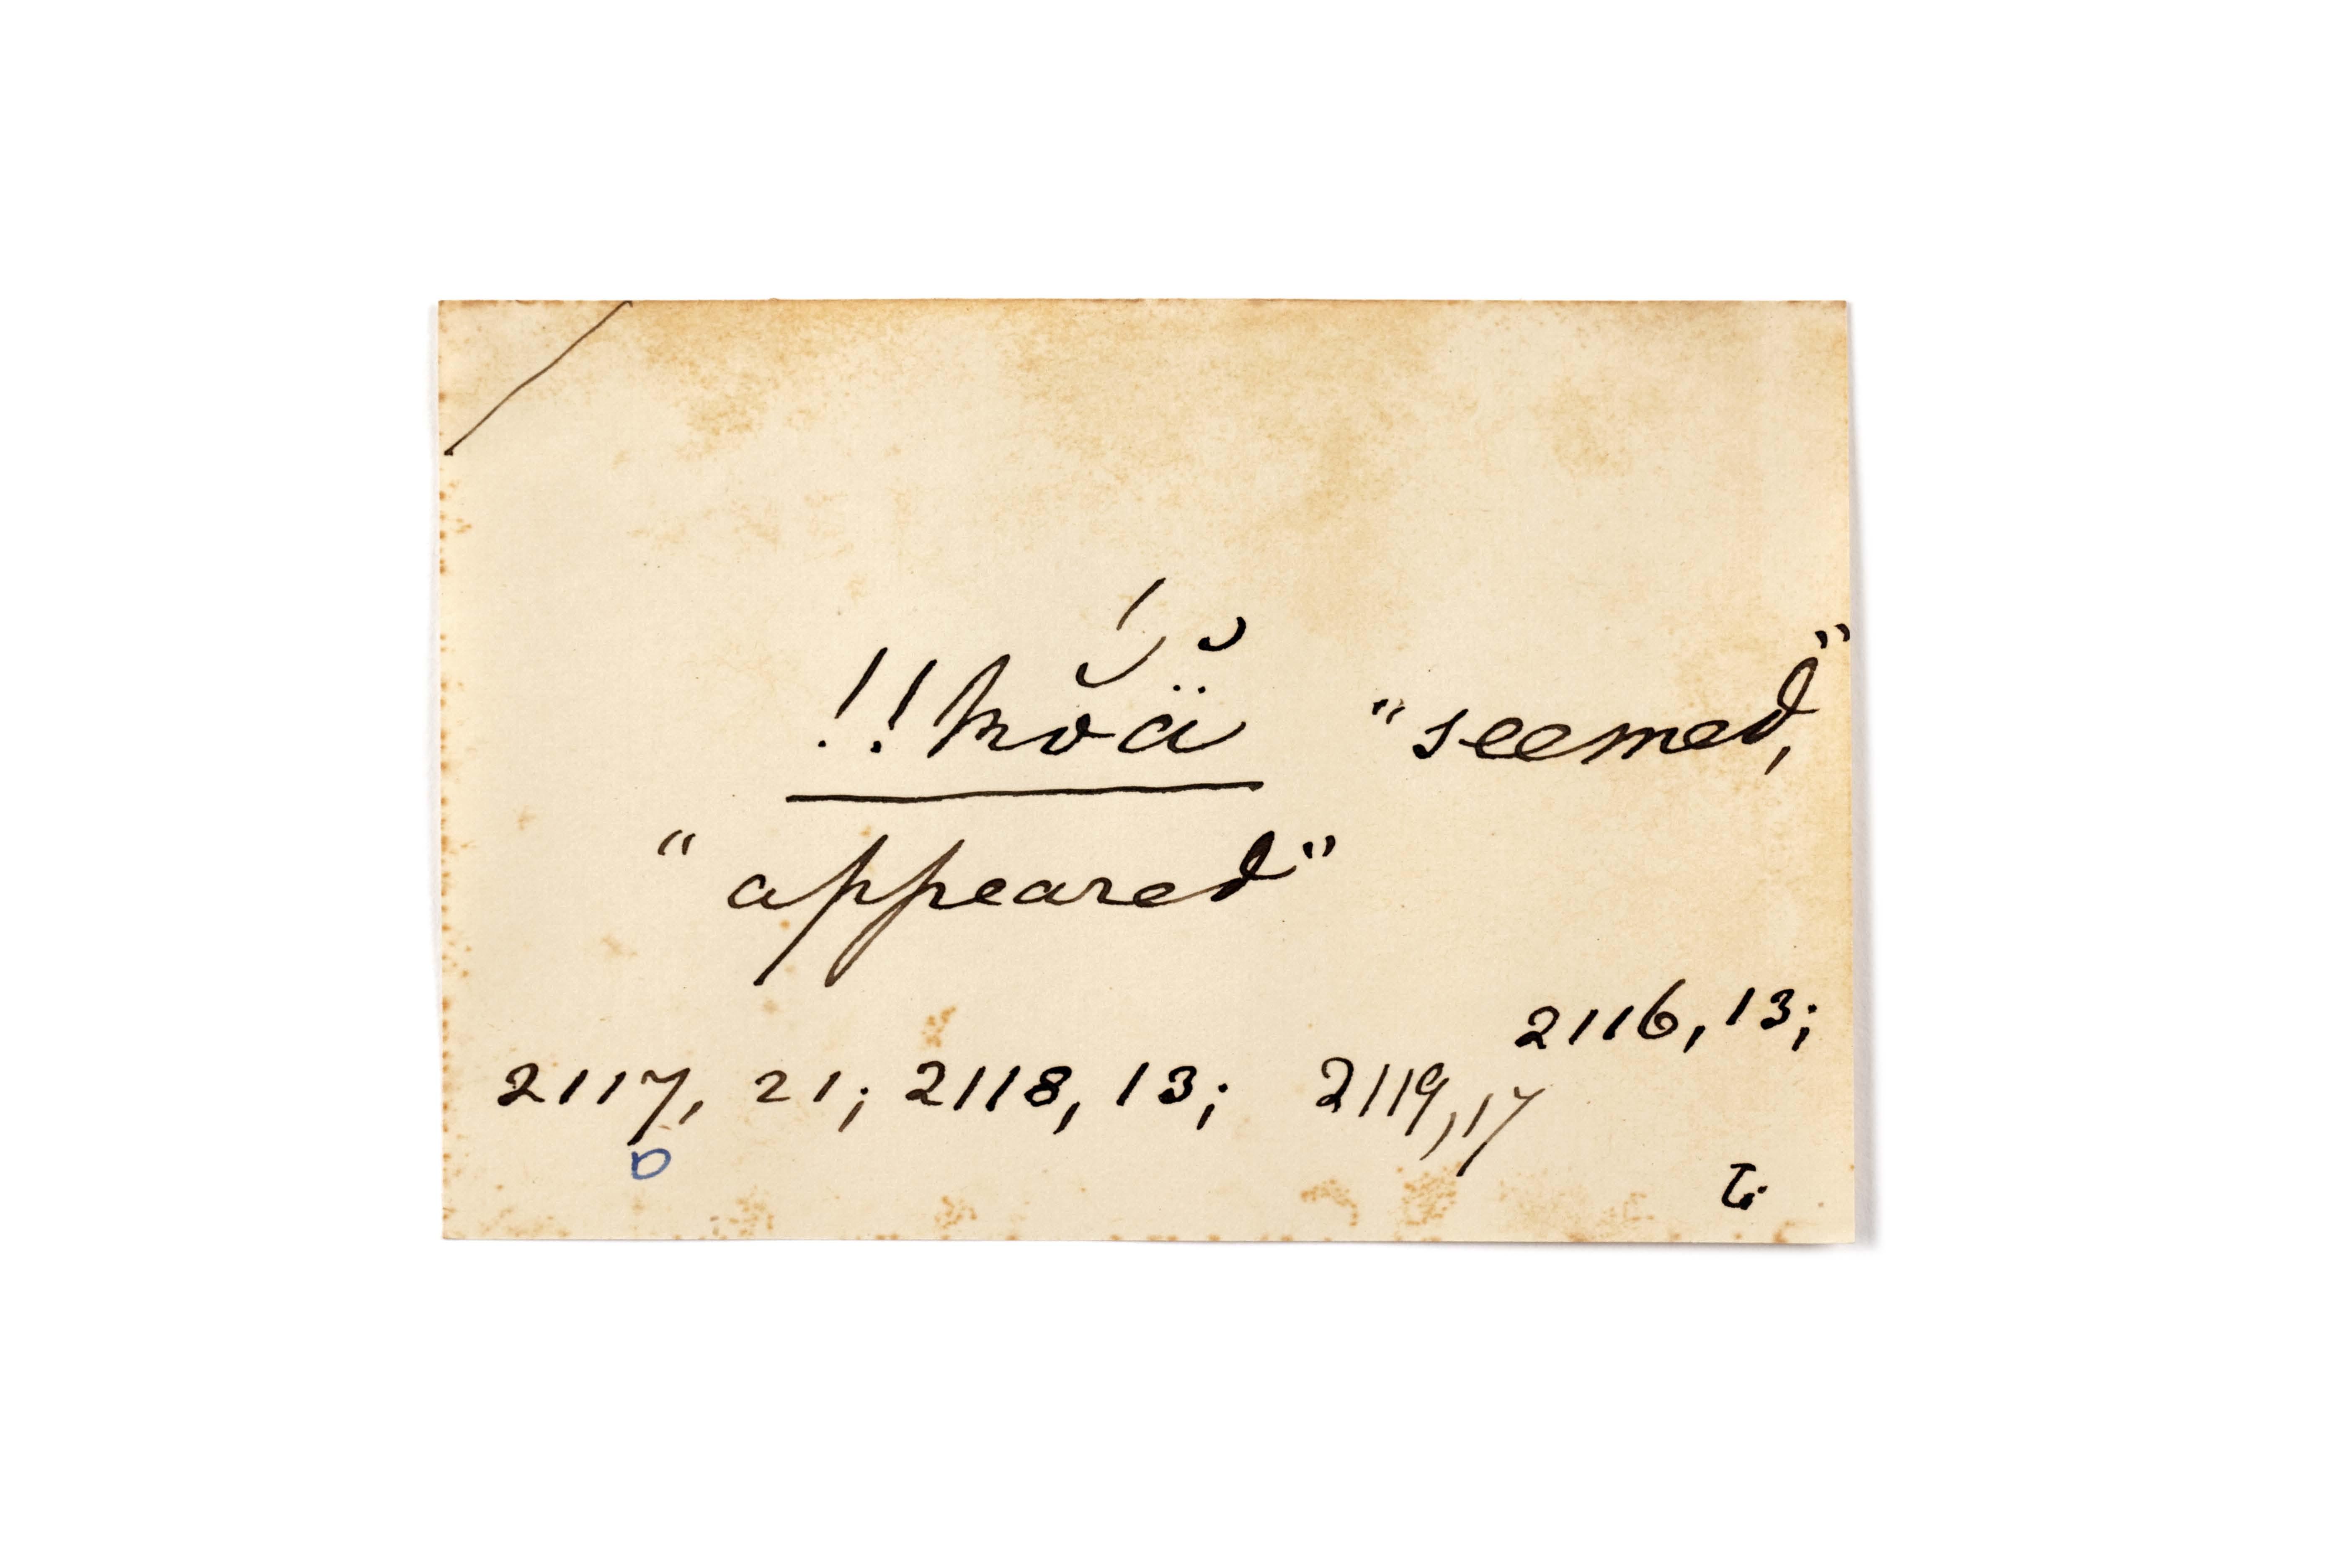 !!kŏ́ä̆ "seemed,"
"appeared"
2116, 13;
2117, 21; 2118, 13; 2119, 17